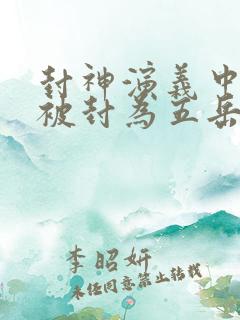 封神演義中
被封為五岳
李昭妍
未经同意禁止转载